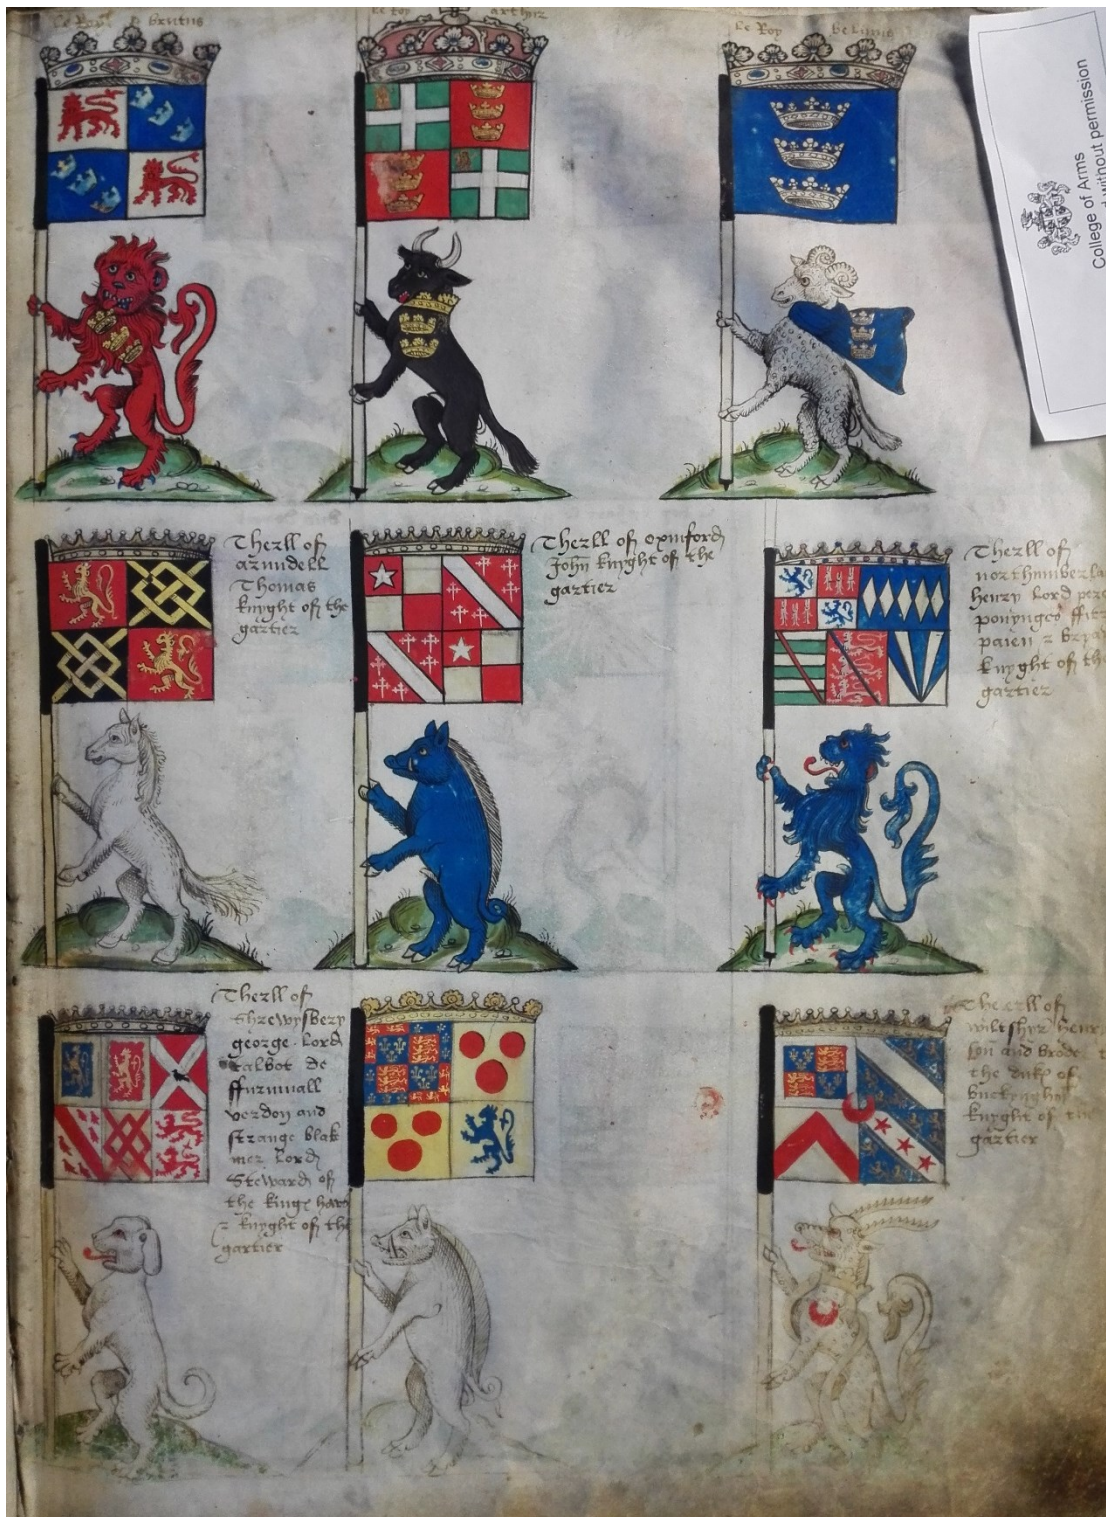 le Roy brutus
le roy arthur
le Roy belinus
College of Arms
without permission
Therll of
arundell
Thomas
knyght off the
gartier
Therll off oxinford
John knyght of the
gartier
Therll of
northumberla
henry lord perc
ponynges ffitz
paien & brya
knyght off the
gartier
Therll of
Shrewysbery
george lord
talbot de
ffurnivall
verdon and
strange blak
mer lord
Steward of
the kinges
& knyght off the
gartier
The erll of
wiltshyr henr
son and brode
the duke of
buckyngham
knyght of the
gartier